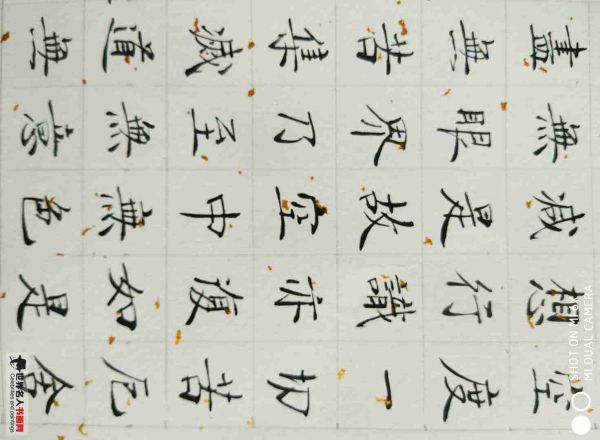 空度一切苦厄舍
想行識亦復如是
減是故空中無色
無眼界乃至無意
盡無苦集滅道無
世界名人书画网
SHOT ON MI
MI DUAL CAMERA